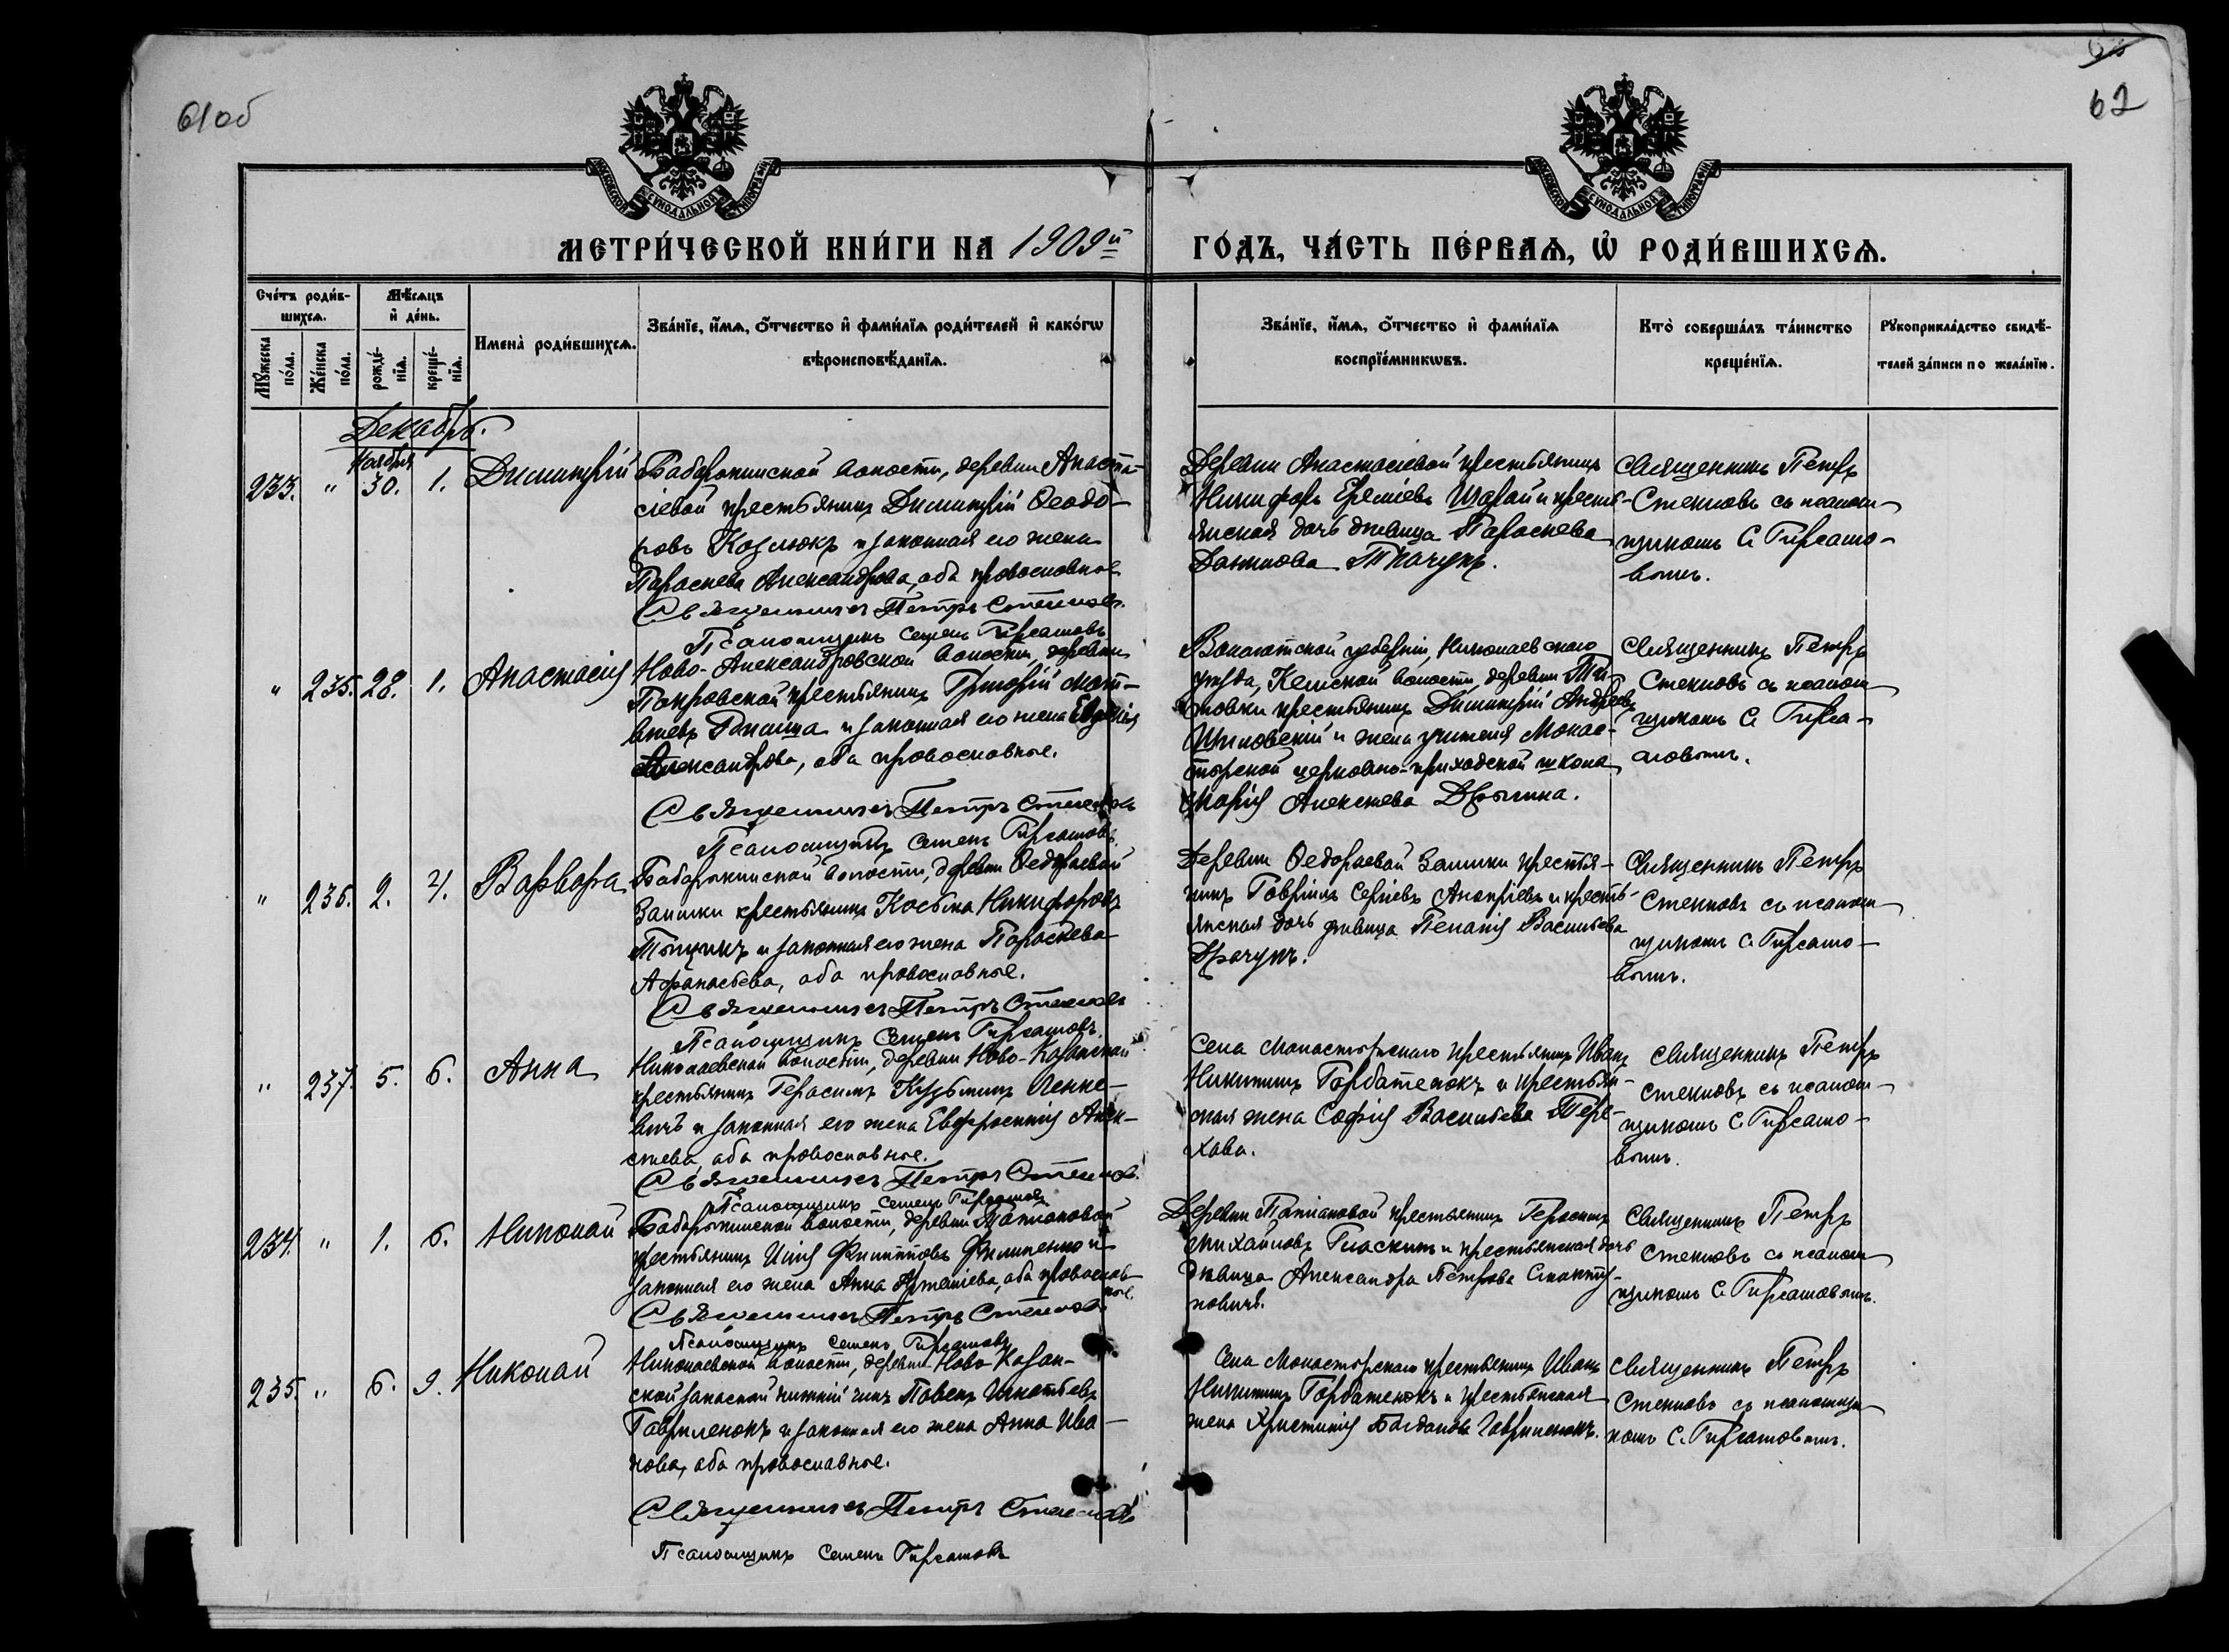 61об
62
МОСКОВСКОЙ СѴНОДАЛЬНОЙ ТИПОГРАФІИ
МОСКОВСКОЙ СѴНОДАЛЬНОЙ ТИПОГРАФІИ
МЕТРИ́ЧЕСКОЙ КНИ́ГИ НА 1909й
ГО́ДЪ, ЧА́СТЬ ПЕ́РВАѦ, Ѽ РОДИ́ВШИХСѦ.
Сче́тъ роди́в-
шихсѧ.
Мѣ́сѧцъ
и҆ де́нь.
Мꙋ́жеска
по́ла.
Же́нска
по́ла.
рожде́-
нїѧ.
креще́-
нїѧ.
Имена̀ роди́вшихсѧ.
Зва́нїе, и҆́мѧ, ѻ҆́тчество и҆ фами́лїѧ роди́телей и҆ како́гѡ
вѣроисповѣ́данїѧ.
Зва́нїе, и҆́мѧ, ѻ҆́тчество и҆ фами́лїѧ
воспрїе́мникѡвъ.
Кто̀ соверша́лъ та́инство
креще́нїѧ.
Рꙋкоприкла́дство свидѣ́-
телей за́писи по жела́нїю.
Декабрь.
Ноября
233. " 30. 1. Димитрій
Бабарыкинской волости, деревни Анаста-
сіевой крестьянинъ Димитрій Ѳеодо-
ровъ Козлюкъ и законная его жена
Параскева Александрова, оба православные
Священникъ Петръ Стекловъ.
Псаломщикъ Семенъ Гирсамовъ
Деревни Анастасіевой крестьянинъ
Никифоръ Ереміевъ и кресть-
янская дочь дѣвица Параскева
Ткачукъ.
Священникъ Петръ
Стекловъ съ псалом-
щикомъ С. Гирсамо-
вымъ.
" 235. 28. 1. Анастасія
Ново-Александровской волости, деревни
Покровской крестьянинъ Григорій Мат-
вѣевъ и законная его жена Евдокія
Александрова, оба православные.
Священникъ Петръ Стекловъ
Псаломщикъ Семенъ Гирсамовъ.
губерніи, Николаевскаго
уѣзда, волости, деревни
крестьянинъ Димитрій Андреевъ
и жена учителя Монас-
тырской церковно-приходской школы
Марія Алексѣева
Священникъ Петръ
Стекловъ съ псалом-
щикомъ С. Гирса-
мовымъ.
" 236. 2. 4. Варвара
Бабарыкинской волости, деревни Ѳедораевой
Заимки крестьянинъ Косьма Никифоровъ
и законная его жена Параскева
Афанасьева, оба православные.
Священникъ Петръ Стекловъ
Псаломщикъ Семенъ Гирсамовъ.
Деревни Ѳедораевой Заимки крестья-
нинъ Гавріилъ Сергіевъ и кресть-
янская дочь дѣвица Пелагія Васильева
Священникъ Петръ
Стекловъ съ псалом-
щикомъ С. Гирсамо-
вымъ.
" 237. 5. 6. Анна
Николаевской волости, деревни Ново-Казанской
крестьянинъ Герасимъ Кузьминъ
и законная его жена Евфросинія Алек-
сѣева, оба православные.
Священникъ Петръ Стекловъ.
Псаломщикъ Семенъ Гирсамовъ
Села Монастырскаго крестьянинъ Иванъ
Никитинъ Горбатенокъ и крестьян-
ская жена Софія Васильева Тере-
хова.
Священникъ Петръ
Стекловъ съ псалом-
щикомъ С. Гирсамо-
вымъ.
234. " 1. 6. Николай
Бабарыкинской волости, деревни
крестьянинъ Илія Филипповъ Филипенко и
законная его жена Анна Артеміева, оба православ-
ные.
Священникъ Петръ Стекловъ
Псаломщикъ Семенъ Гирсамовъ
Деревни крестьянинъ Герасимъ
Михайловъ и крестьянская дочь
дѣвица Александра Петрова
Священникъ Петръ
Стекловъ съ псалом-
щикомъ С. Гирсамовымъ.
235. " 6. 9. Николай
Николаевской волости, деревни Ново-Казан-
ской запасной нижній чинъ Павелъ Игнатьевъ
Гавриленокъ и законная его жена Анна Ива-
нова, оба православные.
Священникъ Петръ Стекловъ
Псаломщикъ Семенъ Гирсамовъ
Села Монастырскаго крестьянинъ Иванъ
Никитинъ Горбатенокъ и крестьянская
жена Христинія Богданова Гавриленокъ.
Священникъ Петръ
Стекловъ съ псаломщи-
комъ С. Гирсамовымъ.